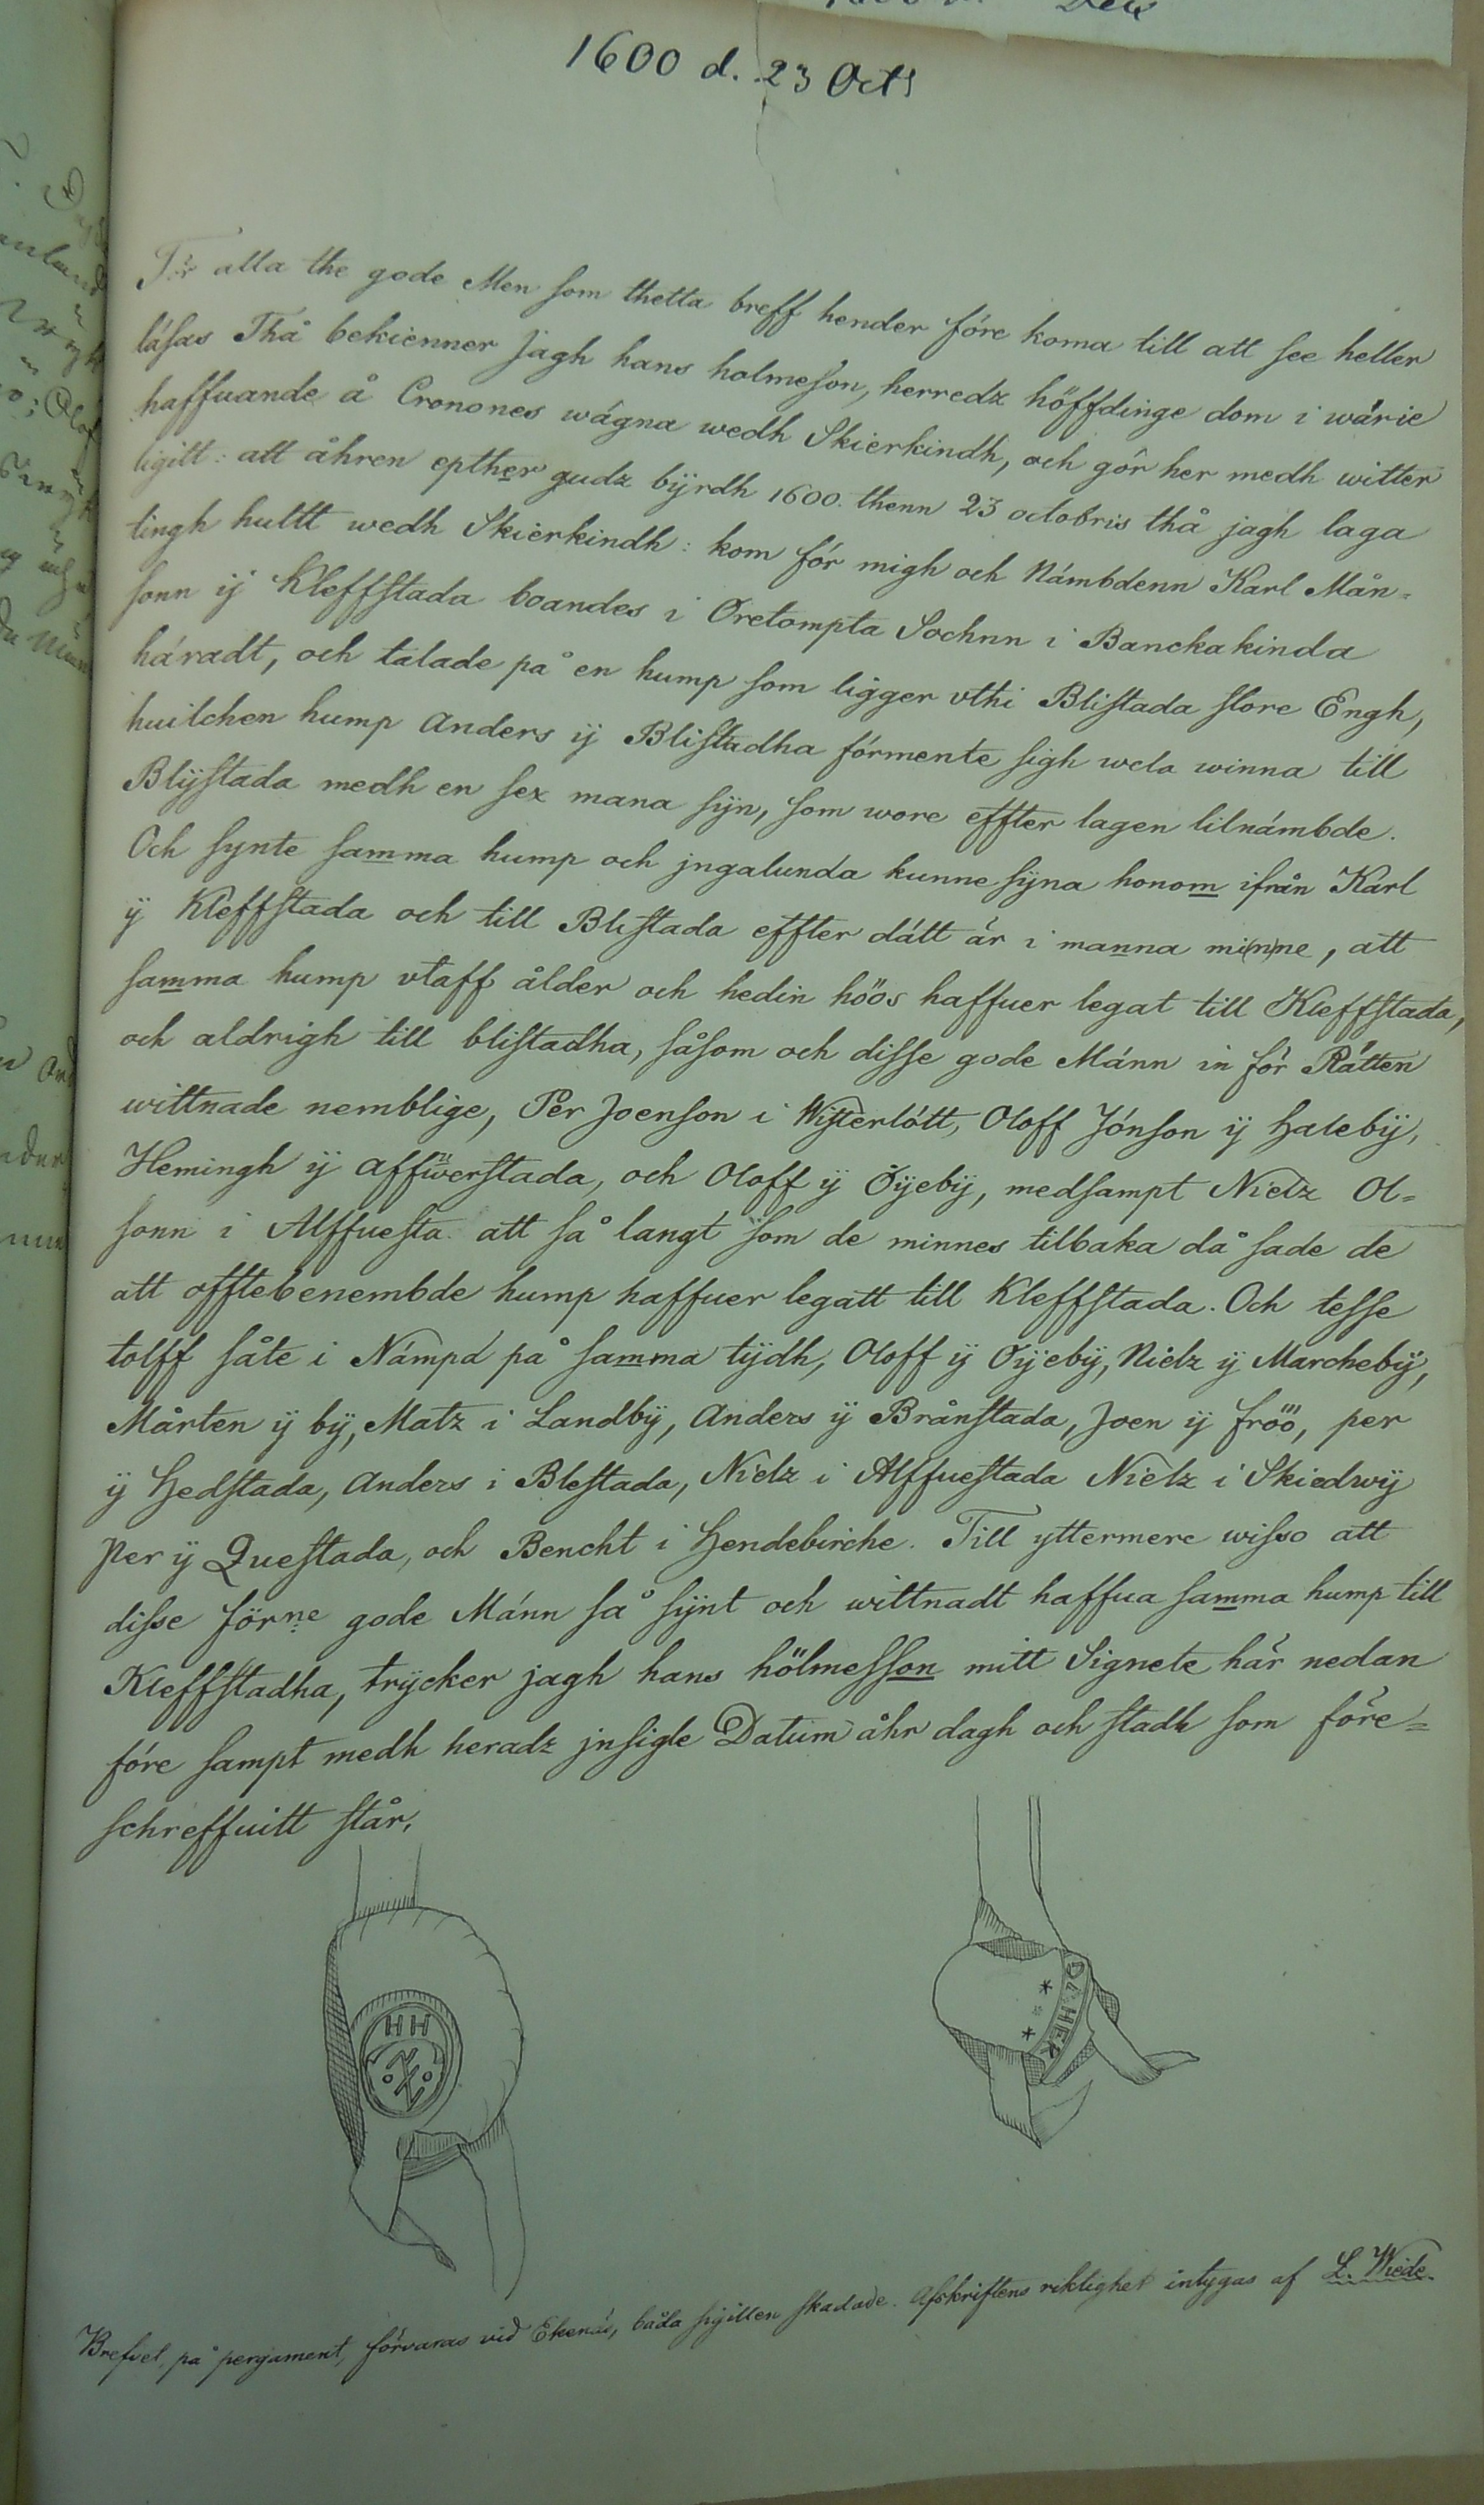 1600 d. 23 Oct
För alla the gode Men som thetta breff hender före koma till att see heller
läsas Thå bekienner Jagh hans holmeson, herredz höffdinge dom i wärie
haffuande å Cronones wägna wedh Skierkindh, och gör her medh witter
ligitt: att åhren epther gudz bÿrdh 1600. thenn 23 octobris thå jagh laga
tingh hultt wedh Skierkindh: kom för migh och Nämbdenn Karl Mån-
sonn ij Kleffstada boandes i Oretompta Sochnn i Banckakinda
häradt, och talade på en hump som ligger vthi Blistada store Engh,
huilchen hump Anders ÿ Blistadha förmente sigh wela winna till
Blÿstada medh en sex mana sÿn, som wore effter lagen tilnämbde.
Och synte samma hump och jngalunda kunne sÿna honom ifrån Karl
ÿ Kleffstada och till Blistada effter dätt är i manna mi(n)ne, att
samma hump vtaff ålder och hedin höös haffuer legat till Kleffstada,
och aldrigh till blistadha, såsom och disse gode Männ in för Rätten
wittnade nemblige, Per Joenson i Wisterlött, Oloff Jönson ÿ Halebÿ,
Hemingh ÿ affwerstada, och Oloff ÿ Öÿebÿ, medsampt Nielz Ol-
sonn i Alffuesta att så langt som de minnes tilbaka då sade de
att offtebenembde hump haffuer legatt till Kleffstada. Och tesse
tolff såte i Nämpd på samma tÿdh, Oloff ÿ Oÿebÿ, Nielz ÿ Marckebÿ,
Mårten ÿ bÿ, Matz i Landbÿ, Anders ÿ Brånstada, Joen ÿ fröö, per
ÿ Hedstada, Anders i Blestada, Nielz i Alffuestada Nielz i Skiedwÿ
Per ÿ Questada, och Bencht i Hendebirche. Till yttermere wisso att
disse förne gode Männ så sÿnt och wittnadt haffua samma hump till
Kleffstadha, trÿcker jagh hans hölmesson mitt Signete här nedan
före sampt medh heradz jnsigle Datum åhr dagh och stadh som före-
schreffuitt står,
HH
HER
Brefvet, på pergament, förvaras vid Ekenäs, båda sigillen skadade. Afskriftens riktighet intygas af L. Wiede.